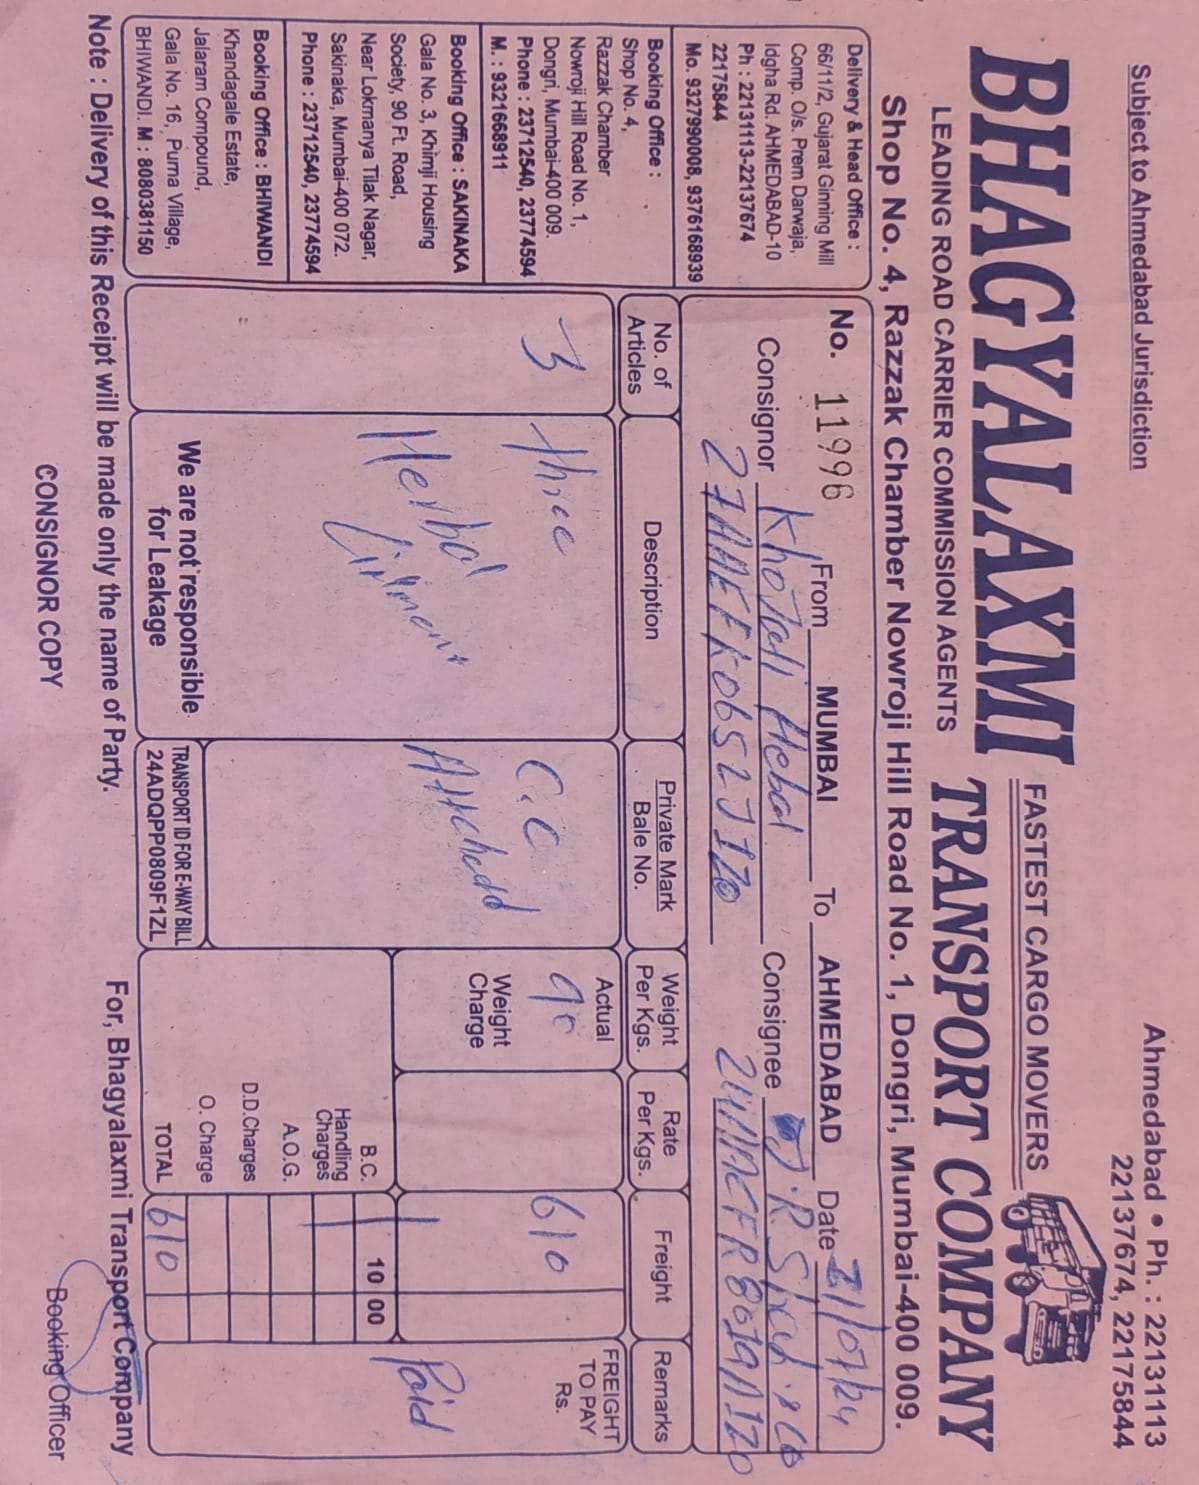 Subject to Ahmedabad Jurisdiction
Ahmedabad • Ph. : 22131113
22137674, 22175844
BHAGYALAXMI
FASTEST CARGO MOVERS
TRANSPORT COMPANY
LEADING ROAD CARRIER COMMISSION AGENTS
Shop No. 4, Razzak Chamber Nowroji Hill Road No. 1, Dongri, Mumbai-400 009.
Delivery & Head Office :
66/11/2, Gujarat Ginning Mill
Comp. O/s. Prem Darwaja,
Idgha Rd. AHMEDABAD-10
Ph : 22131113-22137674
22175844
Mo. 9327990008, 9376168939
Booking Office :
Shop No. 4,
Razzak Chamber
Nowroji Hill Road No. 1,
Dongri, Mumbai-400 009.
Phone : 23712540, 23774594
M. : 9321668911
Booking Office : SAKINAKA
Gala No. 3, Khimji Housing
Society, 90 Ft. Road,
Near Lokmanya Tilak Nagar,
Sakinaka, Mumbai-400 072.
Phone : 23712540, 23774594
Booking Office : BHIWANDI
Khandagale Estate,
Jalaram Compound,
Gala No. 16, Purna Village,
BHIWANDI. M : 8080381150
No. 11996 From MUMBAI To AHMEDABAD Date /07/24
Consignor Hebal Consignee
No. of Articles
Description
Private Mark
Bale No.
Weight Per Kgs.
Rate Per Kgs.
Freight
Remarks
3
three
Herbal
Liniment
C.C
Attchedd
Actual
90
Weight Charge
610
FREIGHT TO PAY Rs.
Paid
B.C. 10 00
Handling Charges
A.O.G.
D.D.Charges
O. Charge
TOTAL 610
We are not responsible
for Leakage
TRANSPORT ID FOR E-WAY BILL
24ADQPP0809F1ZL
Note : Delivery of this Receipt will be made only the name of Party.
For, Bhagyalaxmi Transport Company
CONSIGNOR COPY
Booking Officer